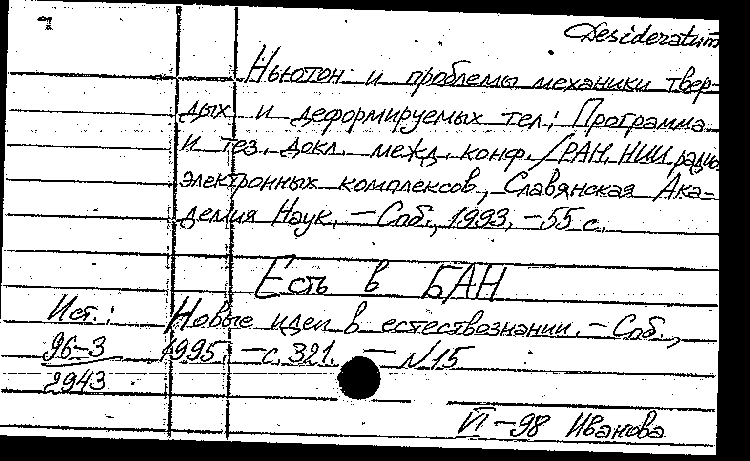 Desideratum
Ньютон и проблемы механики твер-
дых и деформируемых тел: Программа
и тез. докл. межд. конф. /РАН, НИИ радио
электронных комплексов, Славянская Ака-
демия Наук. – Спб., 1993. – 55 с.
Есть в БАН
Ист.: Новые идеи в естествознании. – Спб.,
96-3 1995. – с. 321. – N15
2943
VI – 98 Иванова